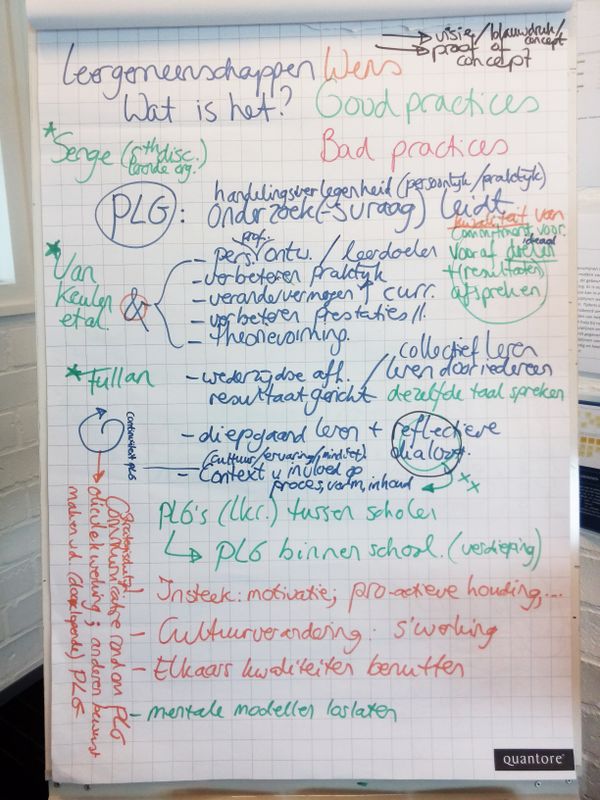 → visie/blauwdruk/concept
→ proof of concept
Leergemeenschappen Wens
Wat is het? Good practices
* Senge (5th disc. lerende org.)
Bad practices
handelingsverlegenheid (persoonlijk/praktijk)
PLG: Onderzoek(-svraag) leidt
* Van Keulen et al.
&
kwaliteit van
commitment voor.
prof.
- pers. ontw. / leerdoelen
vooraf doelen ideaal
- verbeteren praktijk
+ (resultaten)
- verandervermogen ↑ curr.
afspreken
- verbeteren prestaties ll.
- theorievorming.
* Fullan
- wederzijdse afh. / collectief leren
leren door iedereen
resultaatgericht dezelfde taal spreken
continuïteit PLG
- diepgaand leren + reflectieve dialoog.
(cultuur/ervaring/mindset)
- Context v. invloed op
proces, vorm, inhoud
PLG's (lkr.) tussen scholen
↳ PLG binnen school. (verdieping)
- Insteek: motivatie; pro-actieve houding,...
- Cultuurverandering: s'working
- Elkaars kwaliteiten benutten
- mentale modellen loslaten
Communicatie rond om PLG
olievlekwerking; anderen bewust
maken v.d. (doorlopende) PLG
quantore